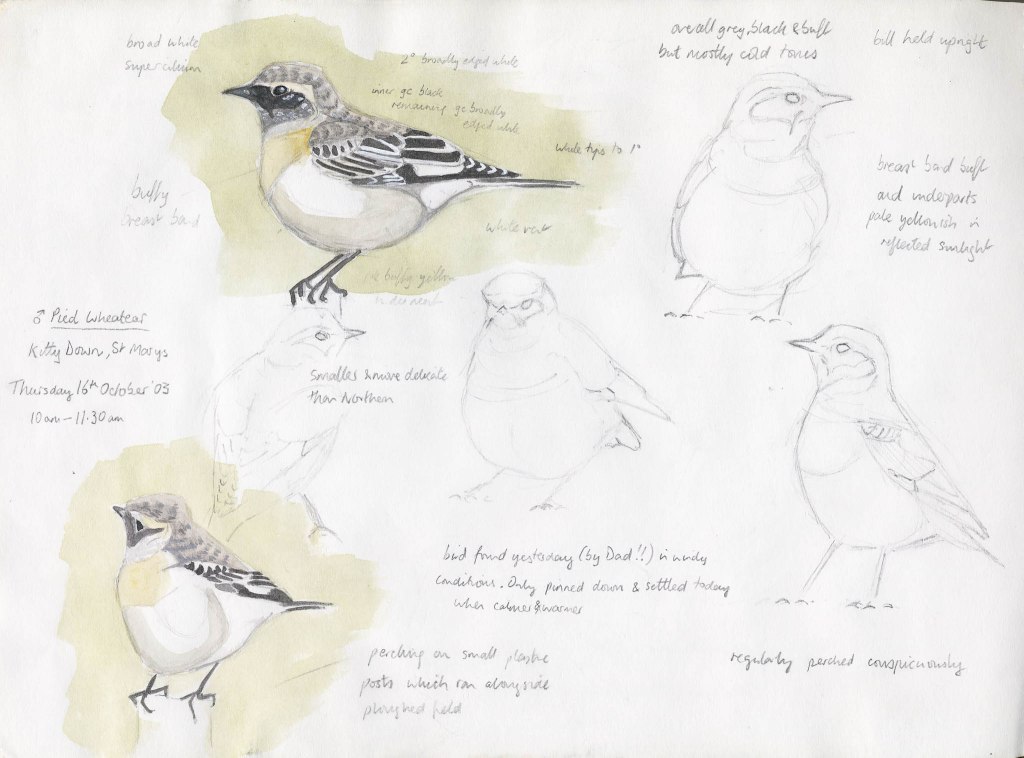 broad white
supercilium
2° broadly edged white
inner gc black
remaining gc broadly
edged white
white tips to 1°
buffy
breast band
white vent
buffy yellow
overall grey, black & buff
but mostly cold tones
bill held upright
breast band buff
and underparts
pale yellowish in
reflected sunlight
♂ Pied Wheatear
Kitty Down, St Marys
Thursday 16th October '03
10am - 11.30am
Smaller & more delicate
than Northern
bird found yesterday (by Dad!!) in windy
conditions. Only pinned down & settled today
when calmer & warmer
perching on small plastic
posts which ran alongside
ploughed field
regularly perched conspicuously